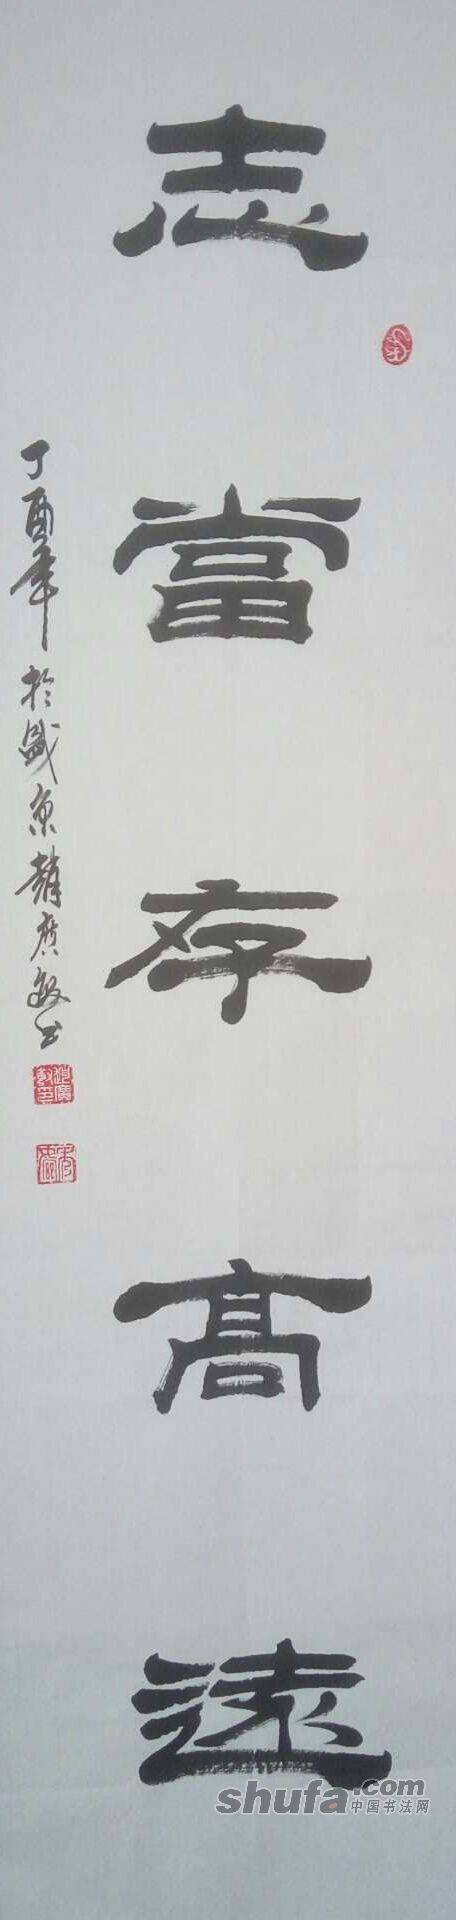 志當存高遠
丁酉年於盛京趙廣敏书
shufa.com
中国书法网